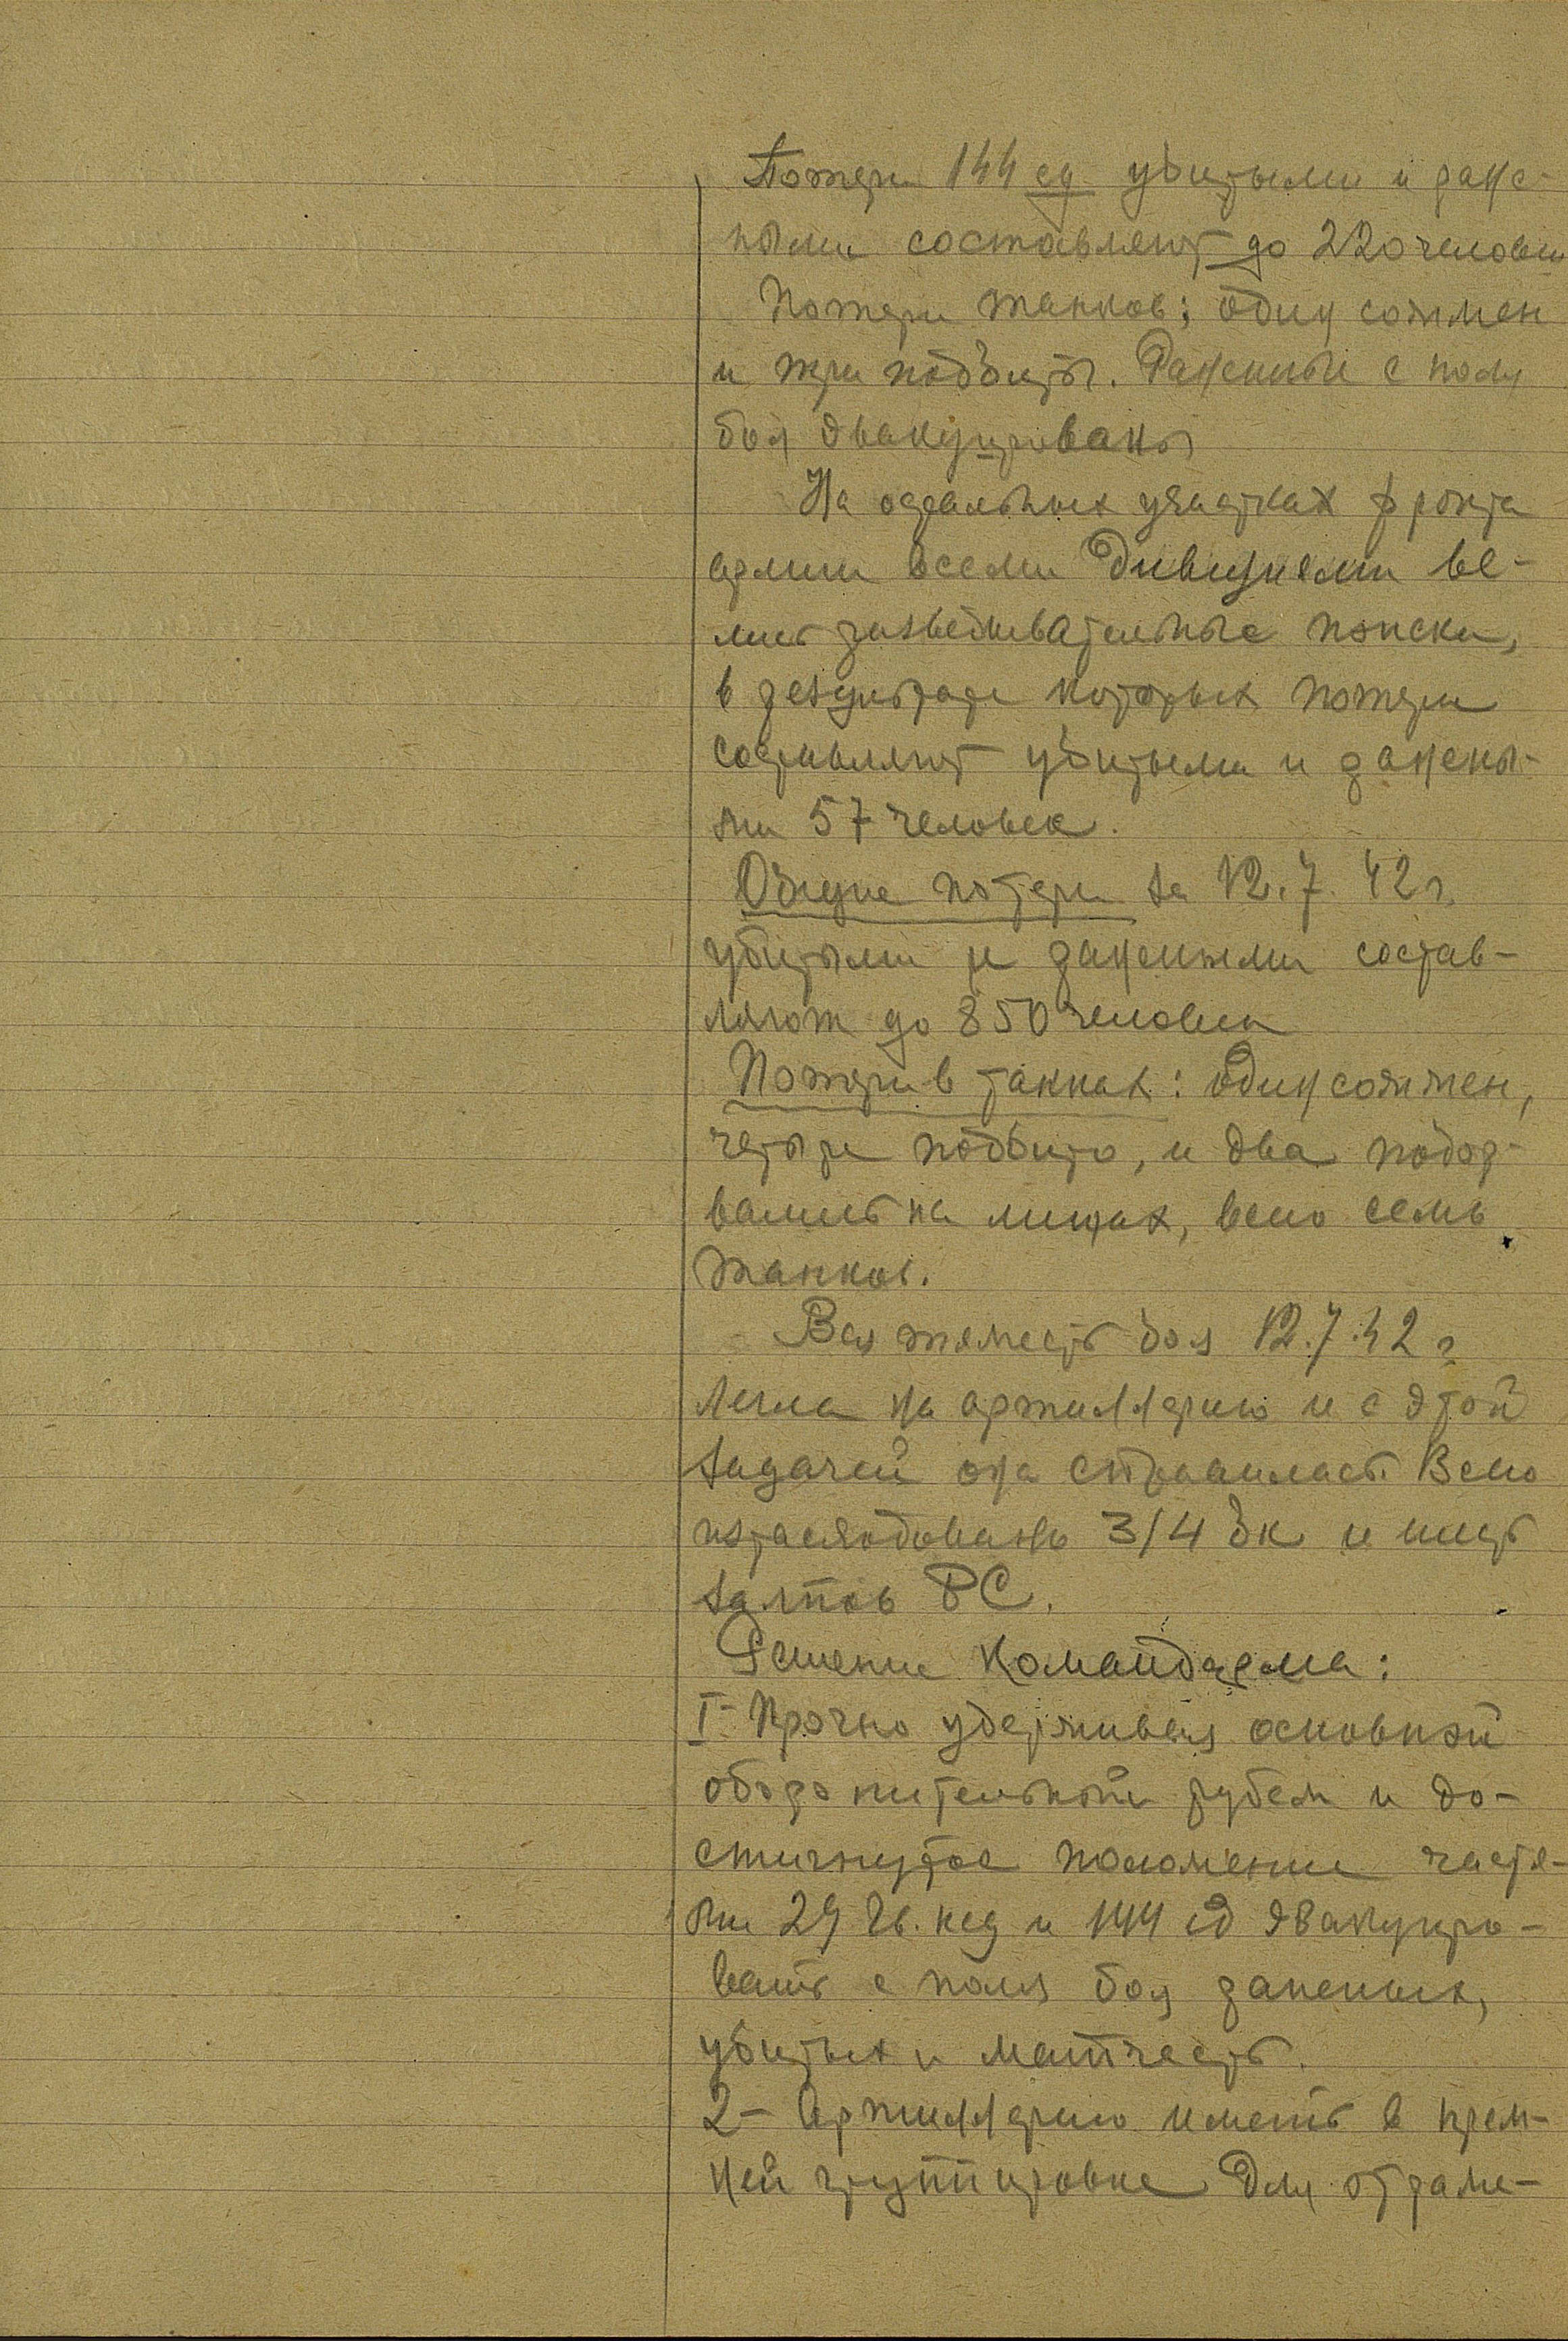 Потери 144 сд убитыми и ране-
ными составляют до 220 человек
Потери танков: один сожжен
и три подбиты. Раненные с поля
боя эвакуированы
На остальных участках фронта
армии всеми дивизиями ве-
лись разведывательные поиски,
в результате которых потери
составляют убитыми и ранены-
ми 57 человек.
Общие потери за 12.7.42 г.
убитыми и ранеными состав-
ляют до 850 человек
Потери в танках: один сожжен,
четыре подбито, и два подор-
вались на минах, всего семь
танков.
Вся тяжесть боя 12.7.42 г
легла на артиллерию и с этой
задачей она справилась. Всего
израсходовано 3/4 бк и шесть
залпов РС.
Решение Командарма:
I- Прочно удерживая основной
оборонительный рубеж и до-
стигнутое положение частя-
ми 29 Гв. ксд и 144 сд эвакуиро-
вать с поля боя раненых,
убитых и матчасть.
2- Артиллерию иметь в преж-
ней группировке для отраже-